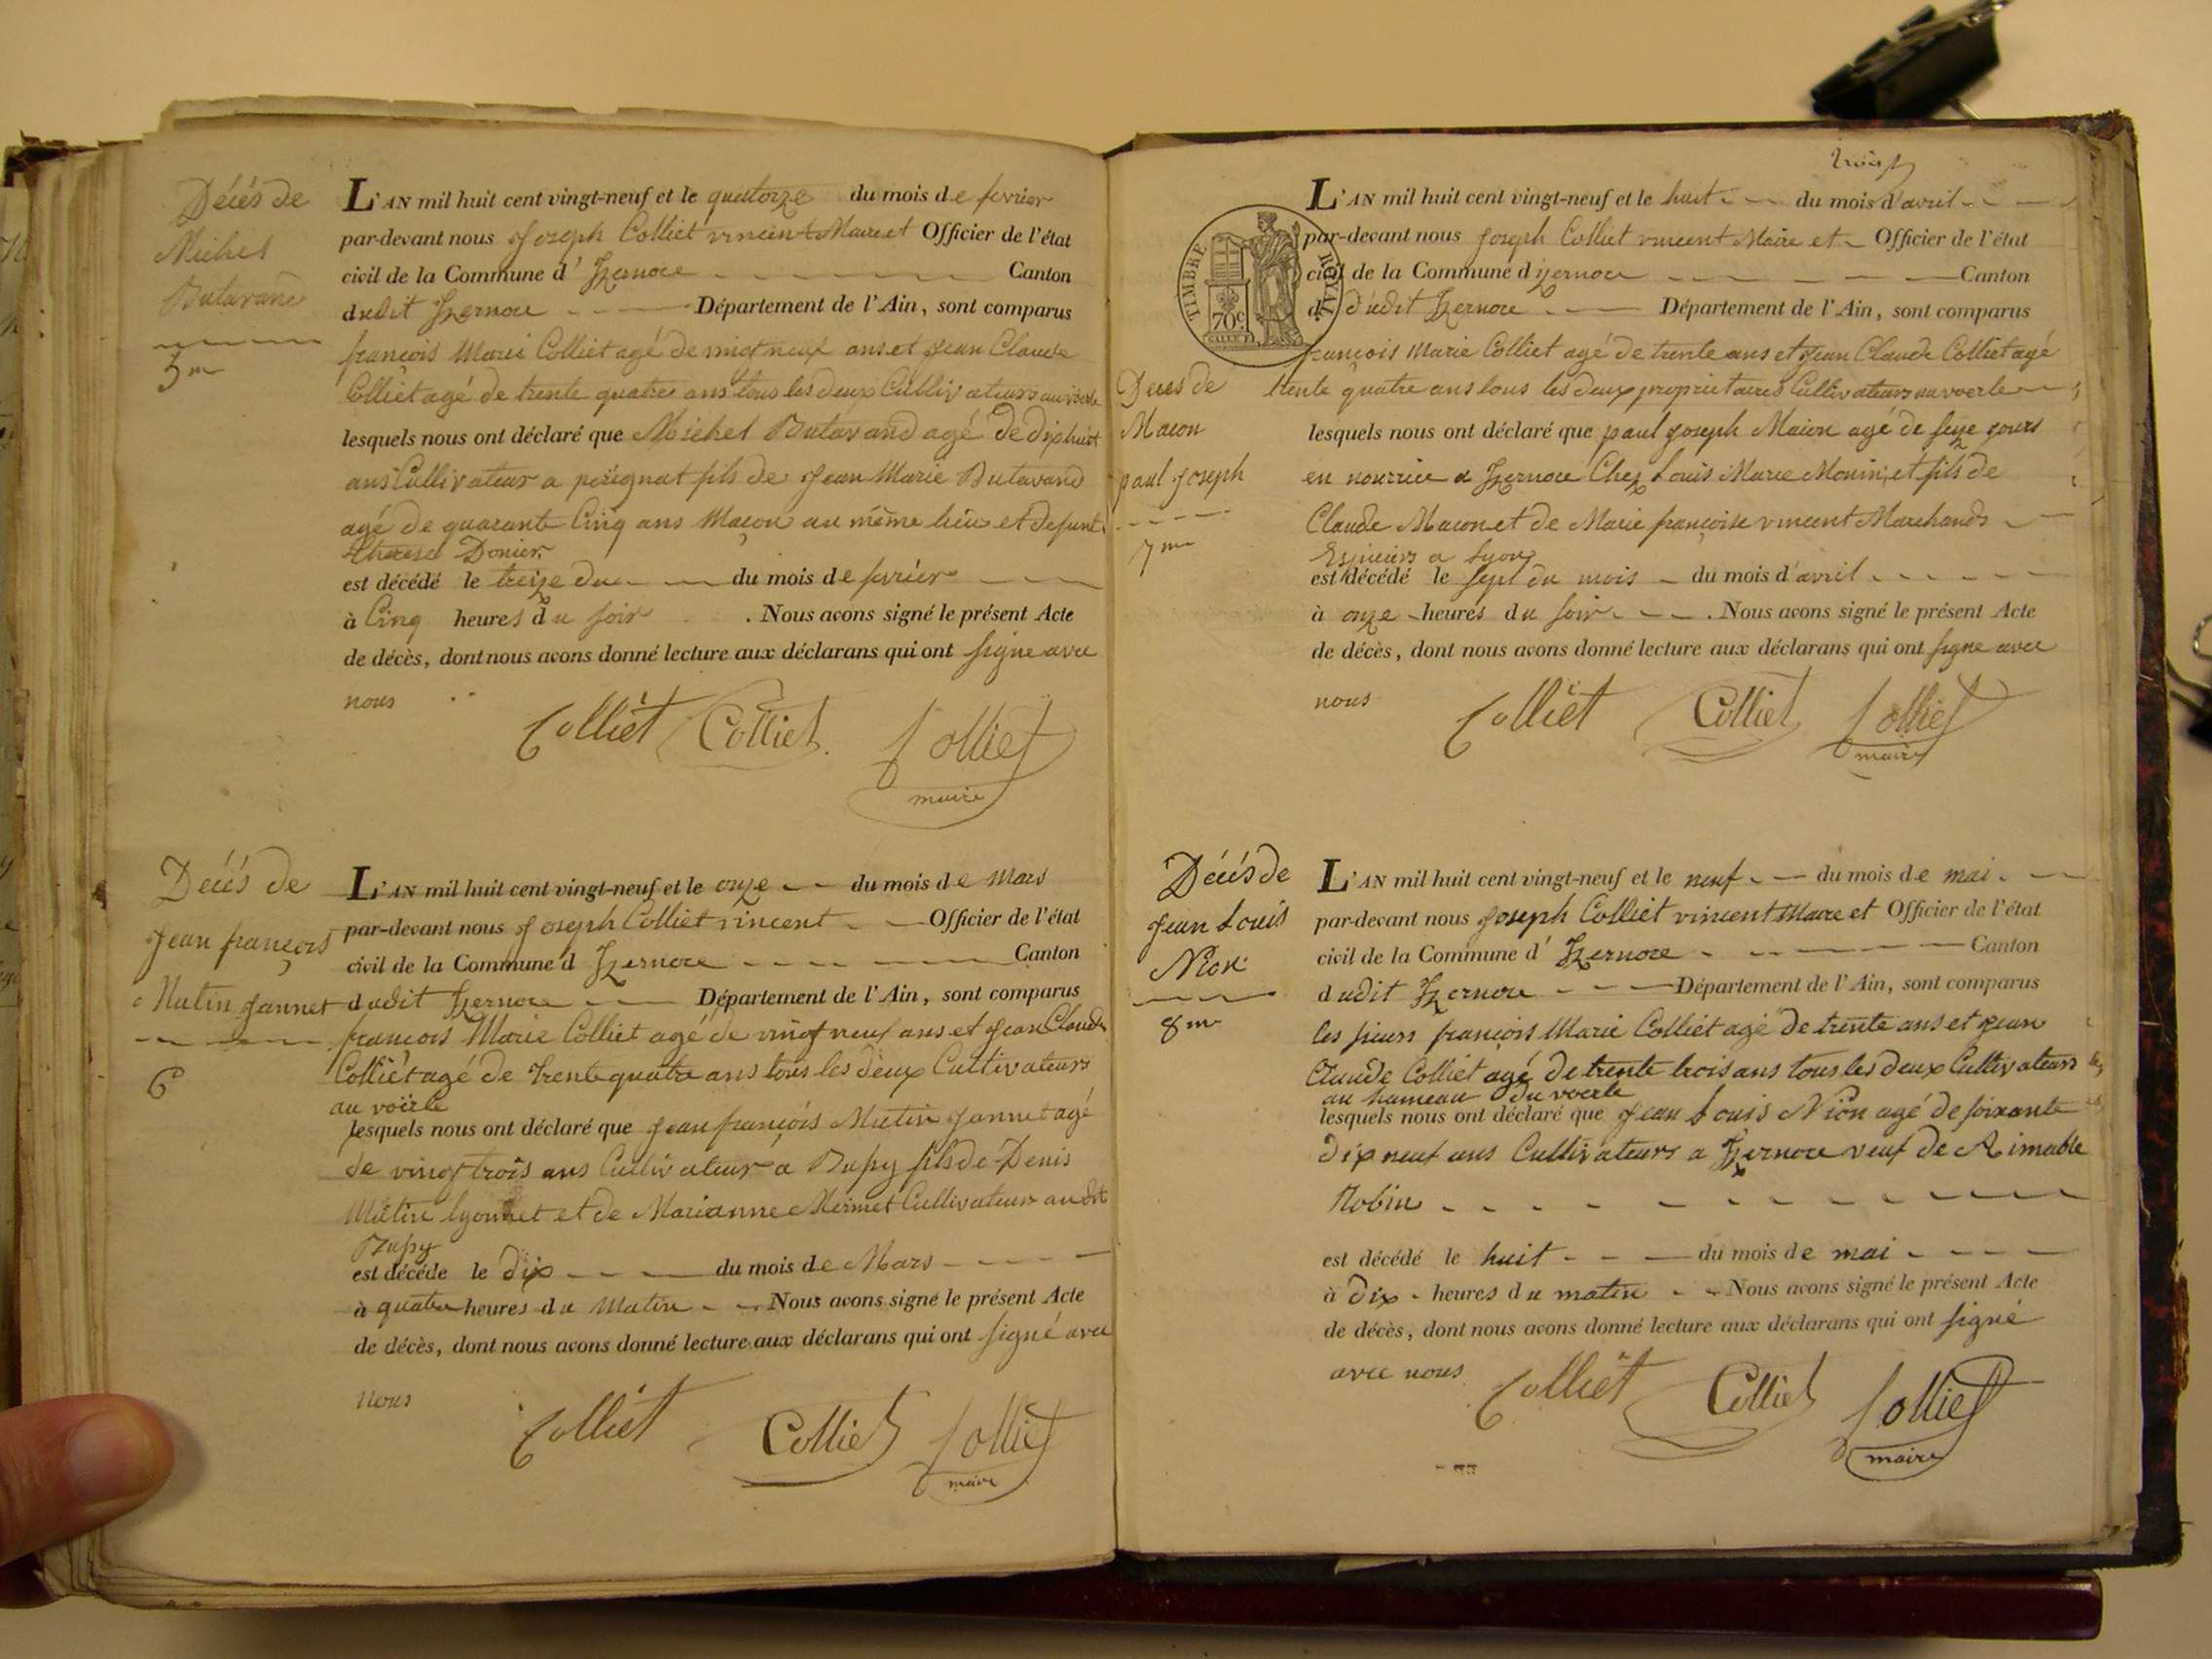 Décés de
Michel
Butavand
5me
L'AN mil huit cent vingt-neuf et le quatorze du mois de fevrier
par-devant nous Joseph Colliet vincent Maire et Officier de l'état
civil de la Commune d' Izernore Canton
dudit Izernore Département de l'Ain, sont comparus
françois Marie Colliet agé de vingt neuf ans et Jean Claude
Colliet agé de trente quatre ans tous les deux Cultivateurs au voerle
lesquels nous ont déclaré que Michel Butavand agé de dix huit
ans Cultivateur a perignat fils de Jean Marie Butavand
agé de quarante Cinq ans Maçon au même lieu et defunte
Therese Donier
est décédé le treize du du mois de fevrier
à Cinq heures du soir . Nous avons signé le présent Acte
de décès, dont nous avons donné lecture aux déclarans qui ont signe avec
nous
Colliet Colliet Colliet
maire
Décés de
Jean françois
Mutin Jannet
6
L'AN mil huit cent vingt-neuf et le onze du mois de Mars
par-devant nous Joseph Colliet vincent Officier de l'état
civil de la Commune d Izernore Canton
dudit Izernore Département de l'Ain, sont comparus
françois Marie Colliet agé de vingt neuf ans et Jean Claude
Colliet agé de trente quatre ans tous les deux Cultivateurs
au voërle
lesquels nous ont déclaré que Jean françois Mutin Jannet agé
de vingt trois ans Cultivateur a Bussy fils de Denis
Mutin lyonnet et de Marianne Mermet Cultivateur audit
Bussy
est décédé le dix du mois de Mars
à quatre heures du Matin Nous avons signé le présent Acte
de décès, dont nous avons donné lecture aux déclarans qui ont signé avec
nous
Colliet Colliet Colliet
maire
trois
TIMBRE ROYAL
70c
Deces de
Macon
paul Joseph
7me
L'AN mil huit cent vingt-neuf et le huit du mois d'avril
par-devant nous Joseph Colliet vincent Maire et Officier de l'état
civil de la Commune d izernore Canton
d dudit Izernore Département de l'Ain, sont comparus
françois Marie Colliet agé de trente ans et Jean Claude Colliet agé
trente quatre ans tous les deux proprietaires Cultivateurs au voerle
lesquels nous ont déclaré que paul Joseph Macon agé de seize jours
en nourrice a Izernore Chez Louis Marie Monin, et fils de
Claude Macon et de Marie françoise vincent Marchands
Espiciers a Lyon
est décédé le sept du mois du mois d'avril
à onze heures du soir . Nous avons signé le présent Acte
de décès, dont nous avons donné lecture aux déclarans qui ont signe avec
nous
Colliet Colliet Colliet
maire
Décés de
Jean Louis
Nion
8me
L'AN mil huit cent vingt-neuf et le neuf du mois de mai
par-devant nous Joseph Colliet vincent Maire et Officier de l'état
civil de la Commune d' Izernore Canton
dudit Izernore Département de l'Ain, sont comparus
les sieurs françois Marie Colliet agé de trente ans et Jean
Claude Colliet agé de trente trois ans tous les deux Cultivateurs
au hameau du voerle
lesquels nous ont déclaré que Jean Louis Nion agé de soixante
dix neuf ans Cultivateurs a Izernore veuf de Aimable
Robin
est décédé le huit du mois de mai
à dix heures du matin Nous avons signé le présent Acte
de décès, dont nous avons donné lecture aux déclarans qui ont signé
avec nous
Colliet Colliet Colliet
maire